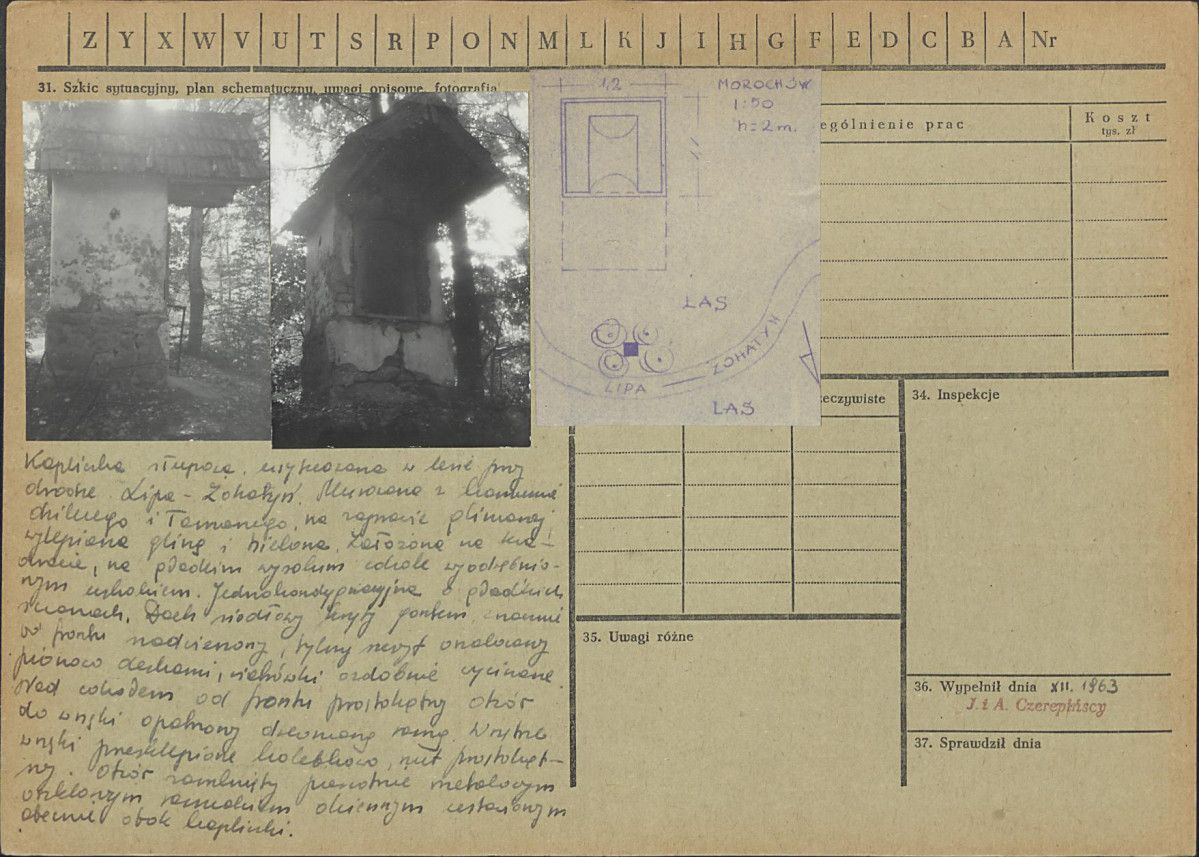 Z Y X W V U T S R P O N M L K J I H G F E D C B A Nr
31. Szkic sytuacyjny, plan schematyczny, uwagi opisowe, fotografia
ególnienie prac
Koszt
tys. zł
1,2
MOROCHÓW
1:50
h=2m.
LAS
LIPA
ŻOHATYŃ
LAS
eczywiste
34. Inspekcje
Kapliczka słupowa, usytuowana w lesie przy
drodze Lipa - Żohatyń. Murowana z kamienia
dzikiego i łamanego, na zaprawie glinianej
wylepiana gliną i bielona. Założona na kwa-
dracie, na gładkim wysokim cokole wyodrębnio-
nym uskokiem. Jednokondygnacyjna o gładkich
ścianach. Dach siodłowy kryty gontem, znacznie
od frontu nadwieszony, tylny szczyt oszalowany
pionowo deskami, wiatrówki ozdobnie wycinane.
Nad cokołem od frontu prostokątny otwór
do wnęki opatrzony drewnianą ramą. Wnętrze
wnęki przesklepione kolebkowo, rzut prostokąt-
ny. Otwór zamknięty pierwotnie metalowym
oszklonym ramiakiem okiennym ustawionym
obecnie obok kapliczki.
35. Uwagi różne
36. Wypełnił dnia XII. 1963
J. i A. Czerepińscy
37. Sprawdził dnia